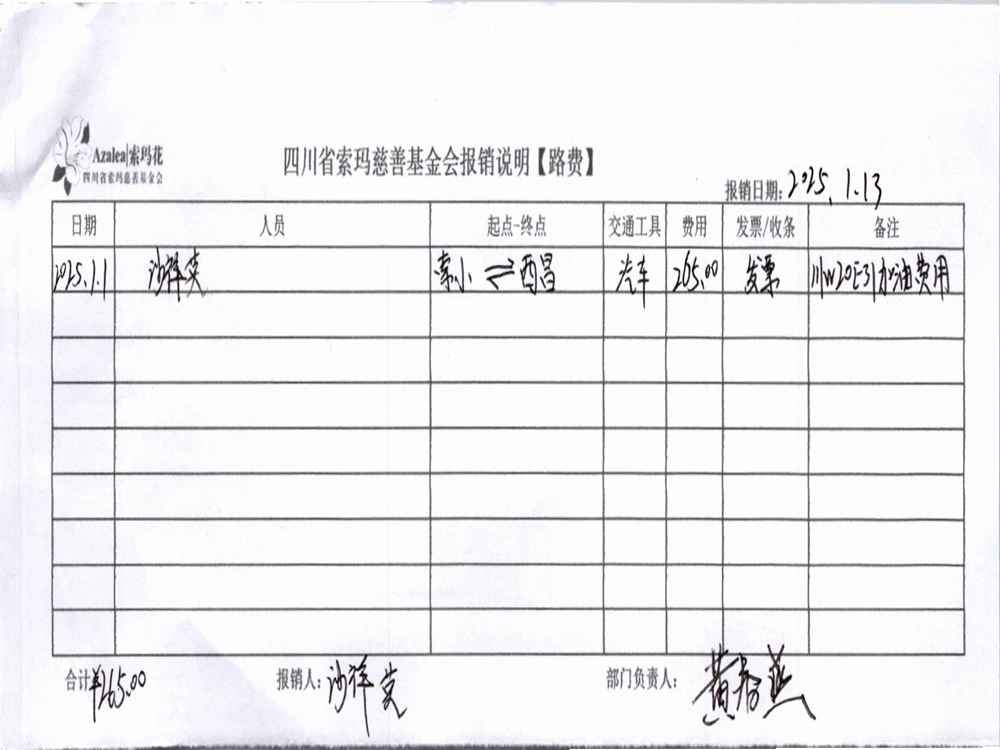 Azalea|索玛花
四川省索玛慈善基金会
四川省索玛慈善基金会报销说明【路费】
报销日期: 2025.1.13
日期 人员 起点-终点 交通工具 费用 发票/收条 备注
2025.1.1 沙祥英 索小 ⇌ 西昌 汽车 265.00 发票 川W20E31加油费用
合计 ¥265.00 报销人: 沙祥英 部门负责人: 黄春燕